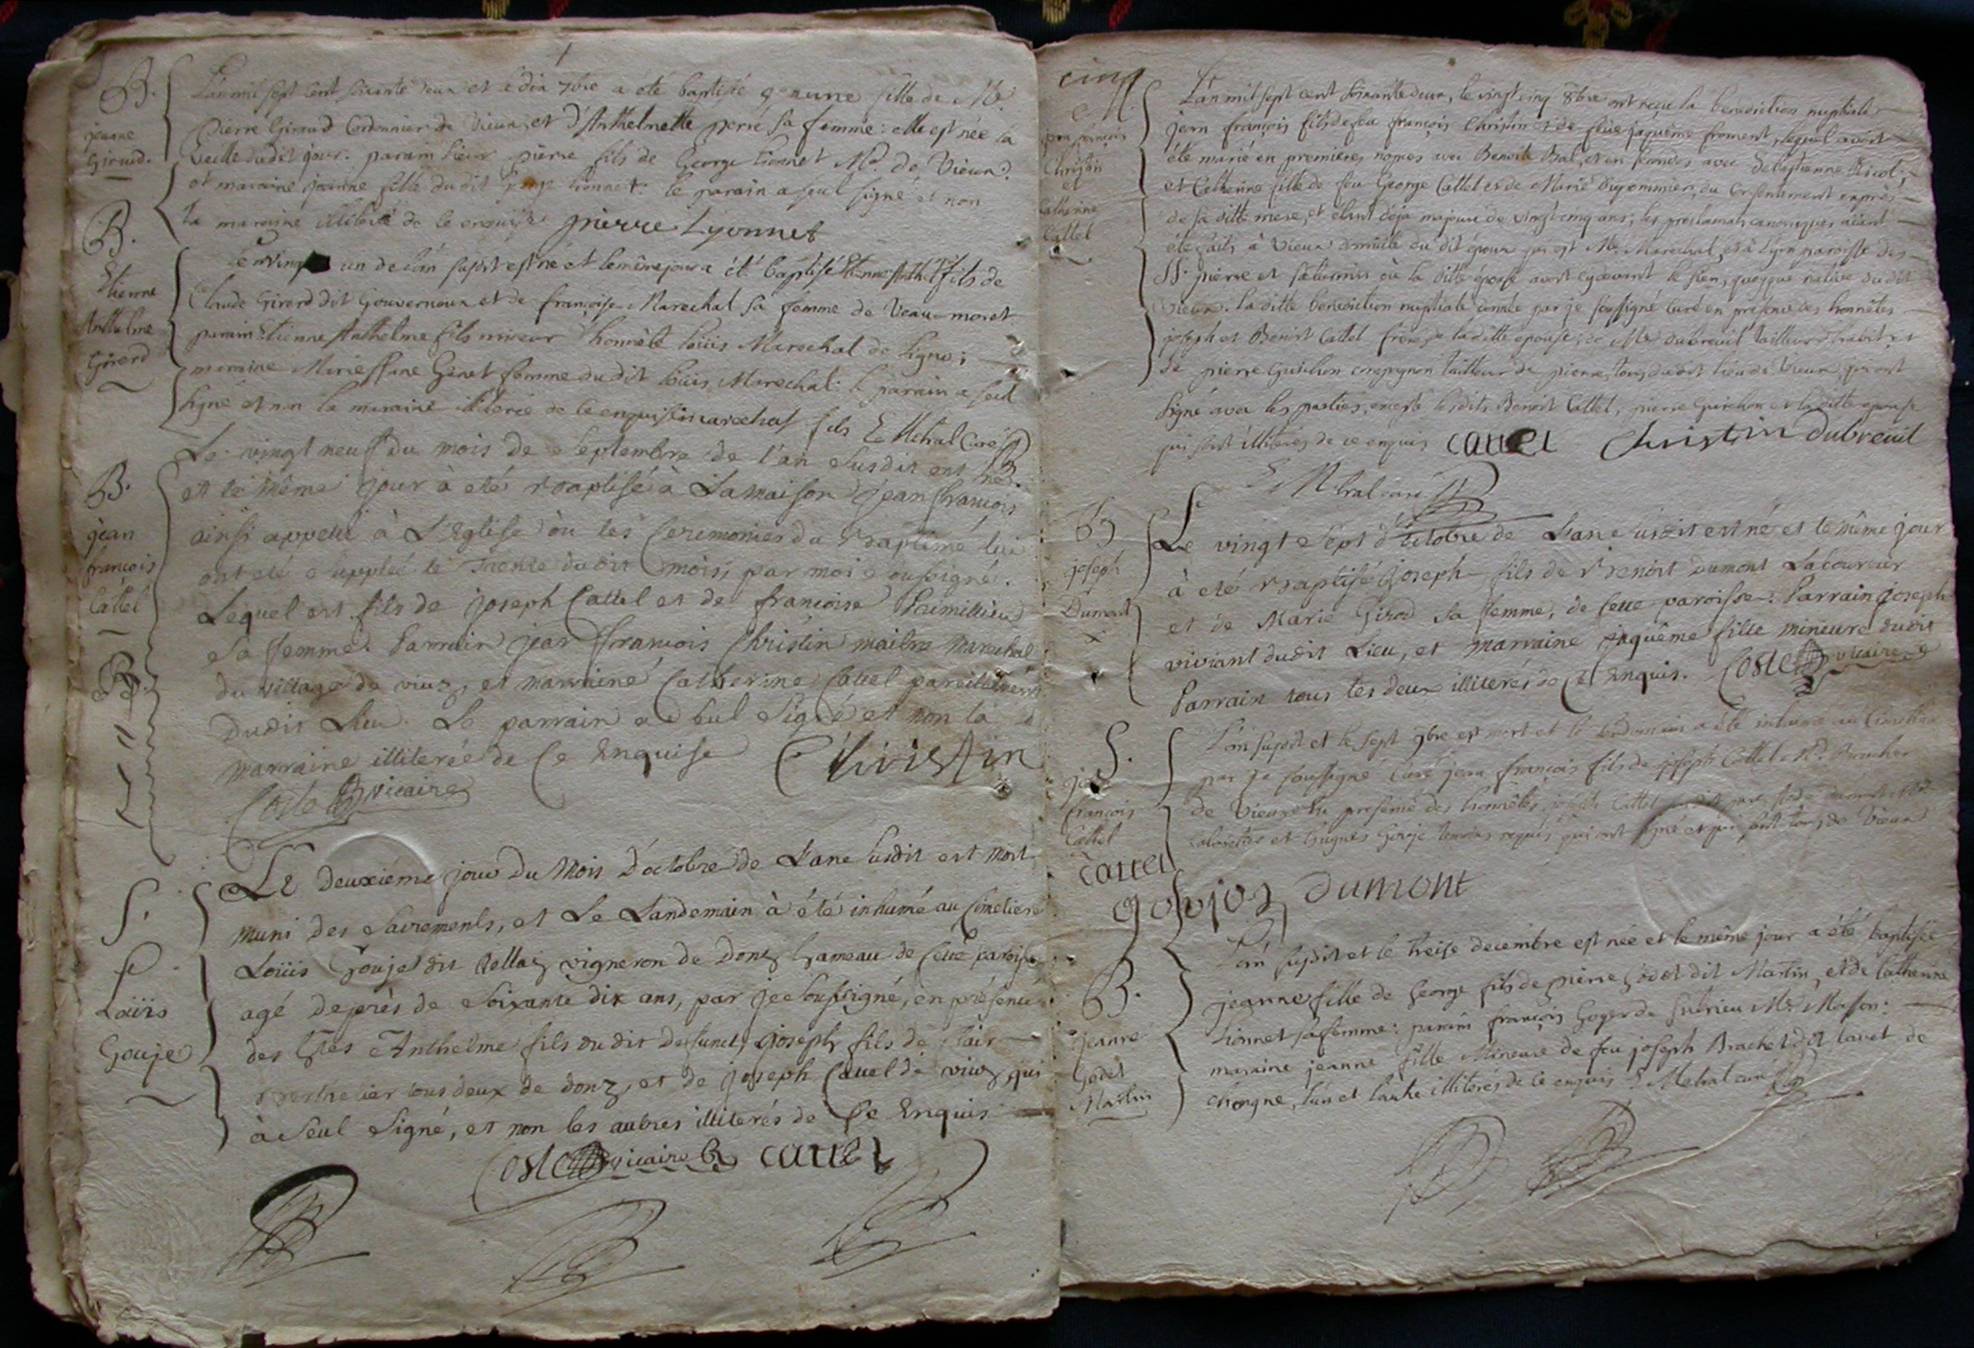 B.
jeanne
Giraud.
L'an mil sept cent soixante deux et le dix 7bre a été baptisé jeanne fille de Mr.
Pierre Giraud Cordonnier de Vieux, et d'Anthelmette perré sa femme: elle est née la
veille dudit jour. parain sieur pierre fils de George Lionnet Md. de Vieux.
et maraine jeanne fille dudit George Lionnet. le parain a seul signé et non
la maraine illiterée de ce enquise pierre Lyonnet
B.
Etienne
Anthelme
Girerd
Le vingt un de l'an susdit est né et le même jour a été baptisé Etienne Anthe. fils de
Claude Girerd dit Gouverneur et de françoise Marechal sa femme de Veau-moret
parain Etienne Anthelme fils mineur honnête Loüis Marechal de Ligno;
maraine Marie Genet femme dudit Loüis Marechal. le parain a seul
signé et non la maraine illiterée de ce enquise marechal fils Mehal Curé
B.
jean
françois
Cattel
Le vingt neuf du mois de Septembre de l'an susdit est né
et le même jour à eté baptisé à La maison jean françois
ainsi appellé à L'Eglise où les Ceremonies du Baptême lui
ont eté suppleé le Trente dudit mois, par moi soussigné.
Lequel est fils de joseph Cattel et de francoise
sa femme. Parrain jean francois Christin maitre marechal
du village de vieux, et marraine Catherine Cattel pareillement
dudit Lieu. Le parrain a seul Signé et non la
marraine illiterée de Ce Enquise Christin
Coste vicaire
S.
Loüis
Gouje
Le deuxiéme jour du Mois d'octobre de L'ane susdit est mort
muni des Sacrements, et Le Landemain à été inhumé au Cimetiere
Loüis Gouje dit Rellaz vigneron de donz hameau de Cette paroisse
agé de près de Soixante dix ans, par je soussigné, en présence
des Anthelme fils du dit deffunct, joseph fils de Clair
Berthelier tous deux de donz, et de joseph Cattel de vieuz, qui
à Seul Signé, et non les autres illiterés de Ce Enquis
Coste vicaire cattel
cinq
M
jean françois
Christin
et
Catherine
Cattel
L'an mil sept cent soixante deux, le vingt cinq 8bre ont reçu la benediction nuptiale
jean françois fils de feu françois Christin et de feüe jaquéme froment, lequel avoit
été marié en premières nopces avec Benoite Bal, et en secondes avec Sebastienne Bicol;
et Catherine fille de feu George Cattel et de Marie Dujommier, du consentement exprès
de sa ditte mere, et étant déja majeure de vingt cinq ans; les proclamats canoniques aiant
été faits à Vieux domicile du dit époux qui est Me. Marechal, et à Lyon paroisse des
SS. pierre et saturnin où la ditte épouse avoit cydevant le sien, quoyque native dudit
Vieux. la ditte benediction nuptiale donnée par je soussigné curé en presence des honnêtes
joseph et Benoit Cattel freres de la ditte epouse, de Me Dubreuil Tailleur d'habit et
de pierre Guichon compagnon tailleur de pierre, tous dudit lieu de Vieux qui ont
signé avec les parties, excepté lesdits Benoit Cattel, pierre Guichon et laditte epouse
qui sont illiterés de ce enquis cattel Christin dubreuil
Mehal curé
B
joseph
Dumont
Le vingt Sept d'octobre de L'an susdit est né et le même jour
à eté Baptisé joseph fils de Benoit Dumont Laboureur
et de Marie Girod sa femme, de cette paroisse. Parrain joseph
viviant dudit Lieu, et marraine jaquême fille mineure dudit
Parrain tous les deux illiterés de Ce Enquis. Coste vicaire
S.
jean
françois
Cattel
L'an susdit et le sept 9bre est mort et le lendemain a été inhumé au Cimetiere
par je soussigné curé jean françois fils de joseph Cattel Md. Boucher
de Vieux en presence des honnêtes joseph Cattel
et Hugues Gouje temoins requis qui ont signé et qui sont tous de Vieux
cattel
goujoz dumont
B.
jeanne
Godet
Martin
L'an susdit et le Treise decembre est née et le même jour a été baptisée
jeanne fille de George fils de pierre Godet dit Martin, et de Catherine
Lionnet sa femme: parain françois Goyer de Me. Masson:
maraine jeanne fille Mineure de feu joseph Brachet dit lavet de
chongne, l'un et l'autre illiterés de ce enquis Mehal curé